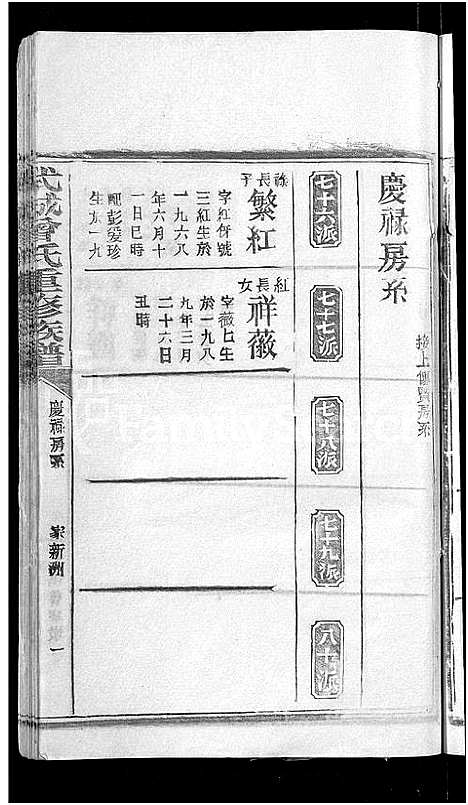 慶禄房系
接上傳賢房系
七十六派
七十七派
七十八派
七十九派
八十派
禄長子
繁紅
字紅併號
三紅生於
一九六八
年六月十
一日巳時
配彭爱珍
生于一九
紅長女
祥薇
字薇上生
於一九八
九年三月
二十六日
丑時
武城曾氏重修族譜
慶禄房系
家新洲
一